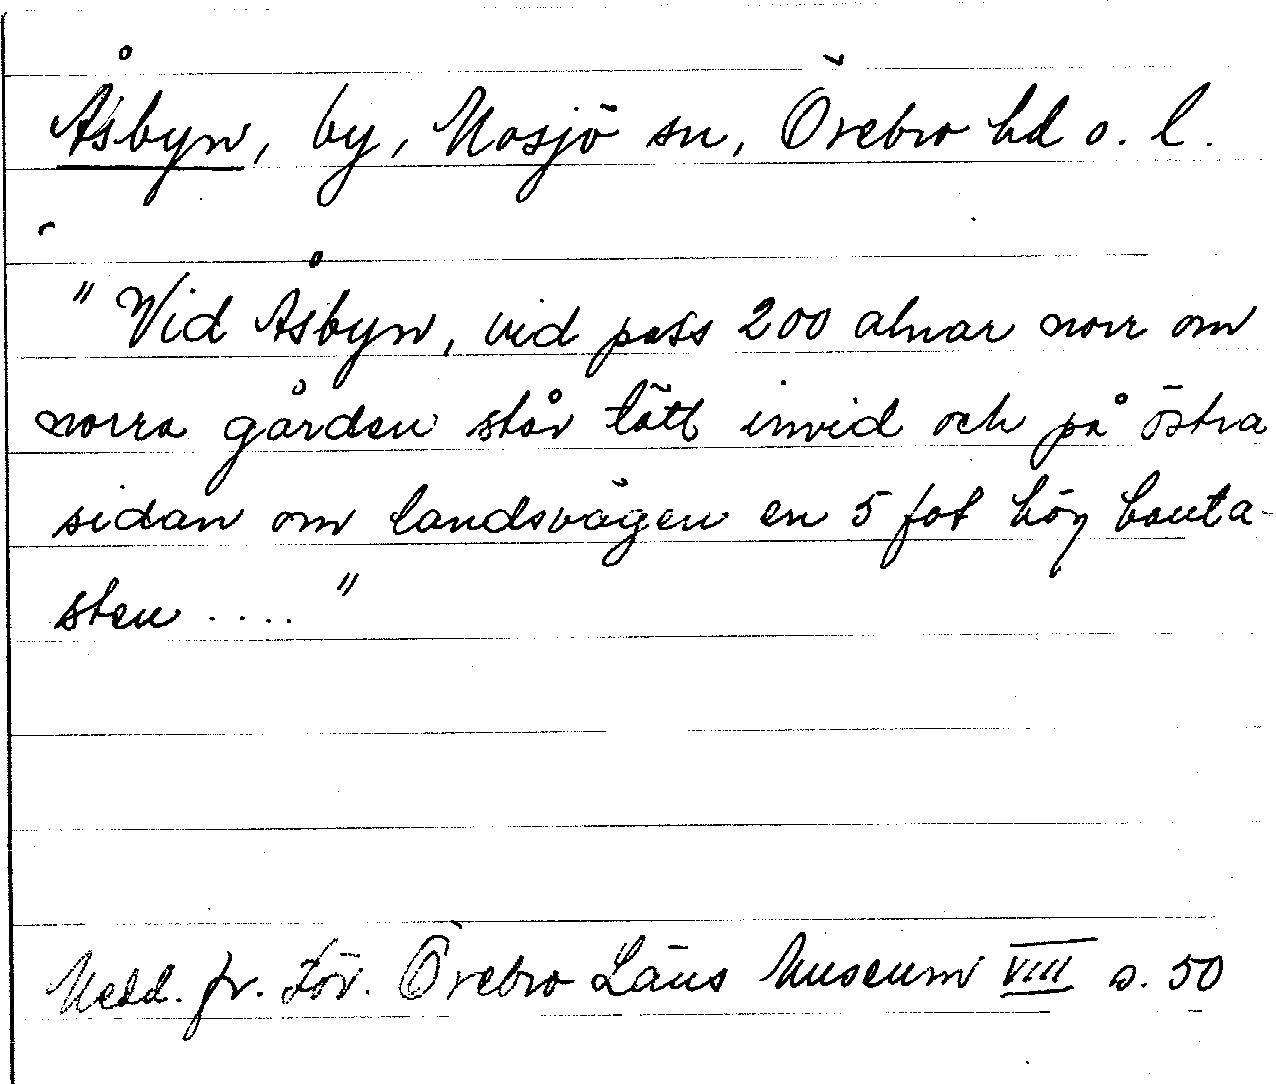 Åsbyn, by, Mosjö sn, Örebro hd o. l.
"Vid Åsbyn, vid pass 200 alnar norr om
norra gården står tätt invid och på östra
sidan om landsvägen en 5 fot hög bauta-
sten .... "
Medd. fr. För. Örebro Läns Museum VIII s. 50